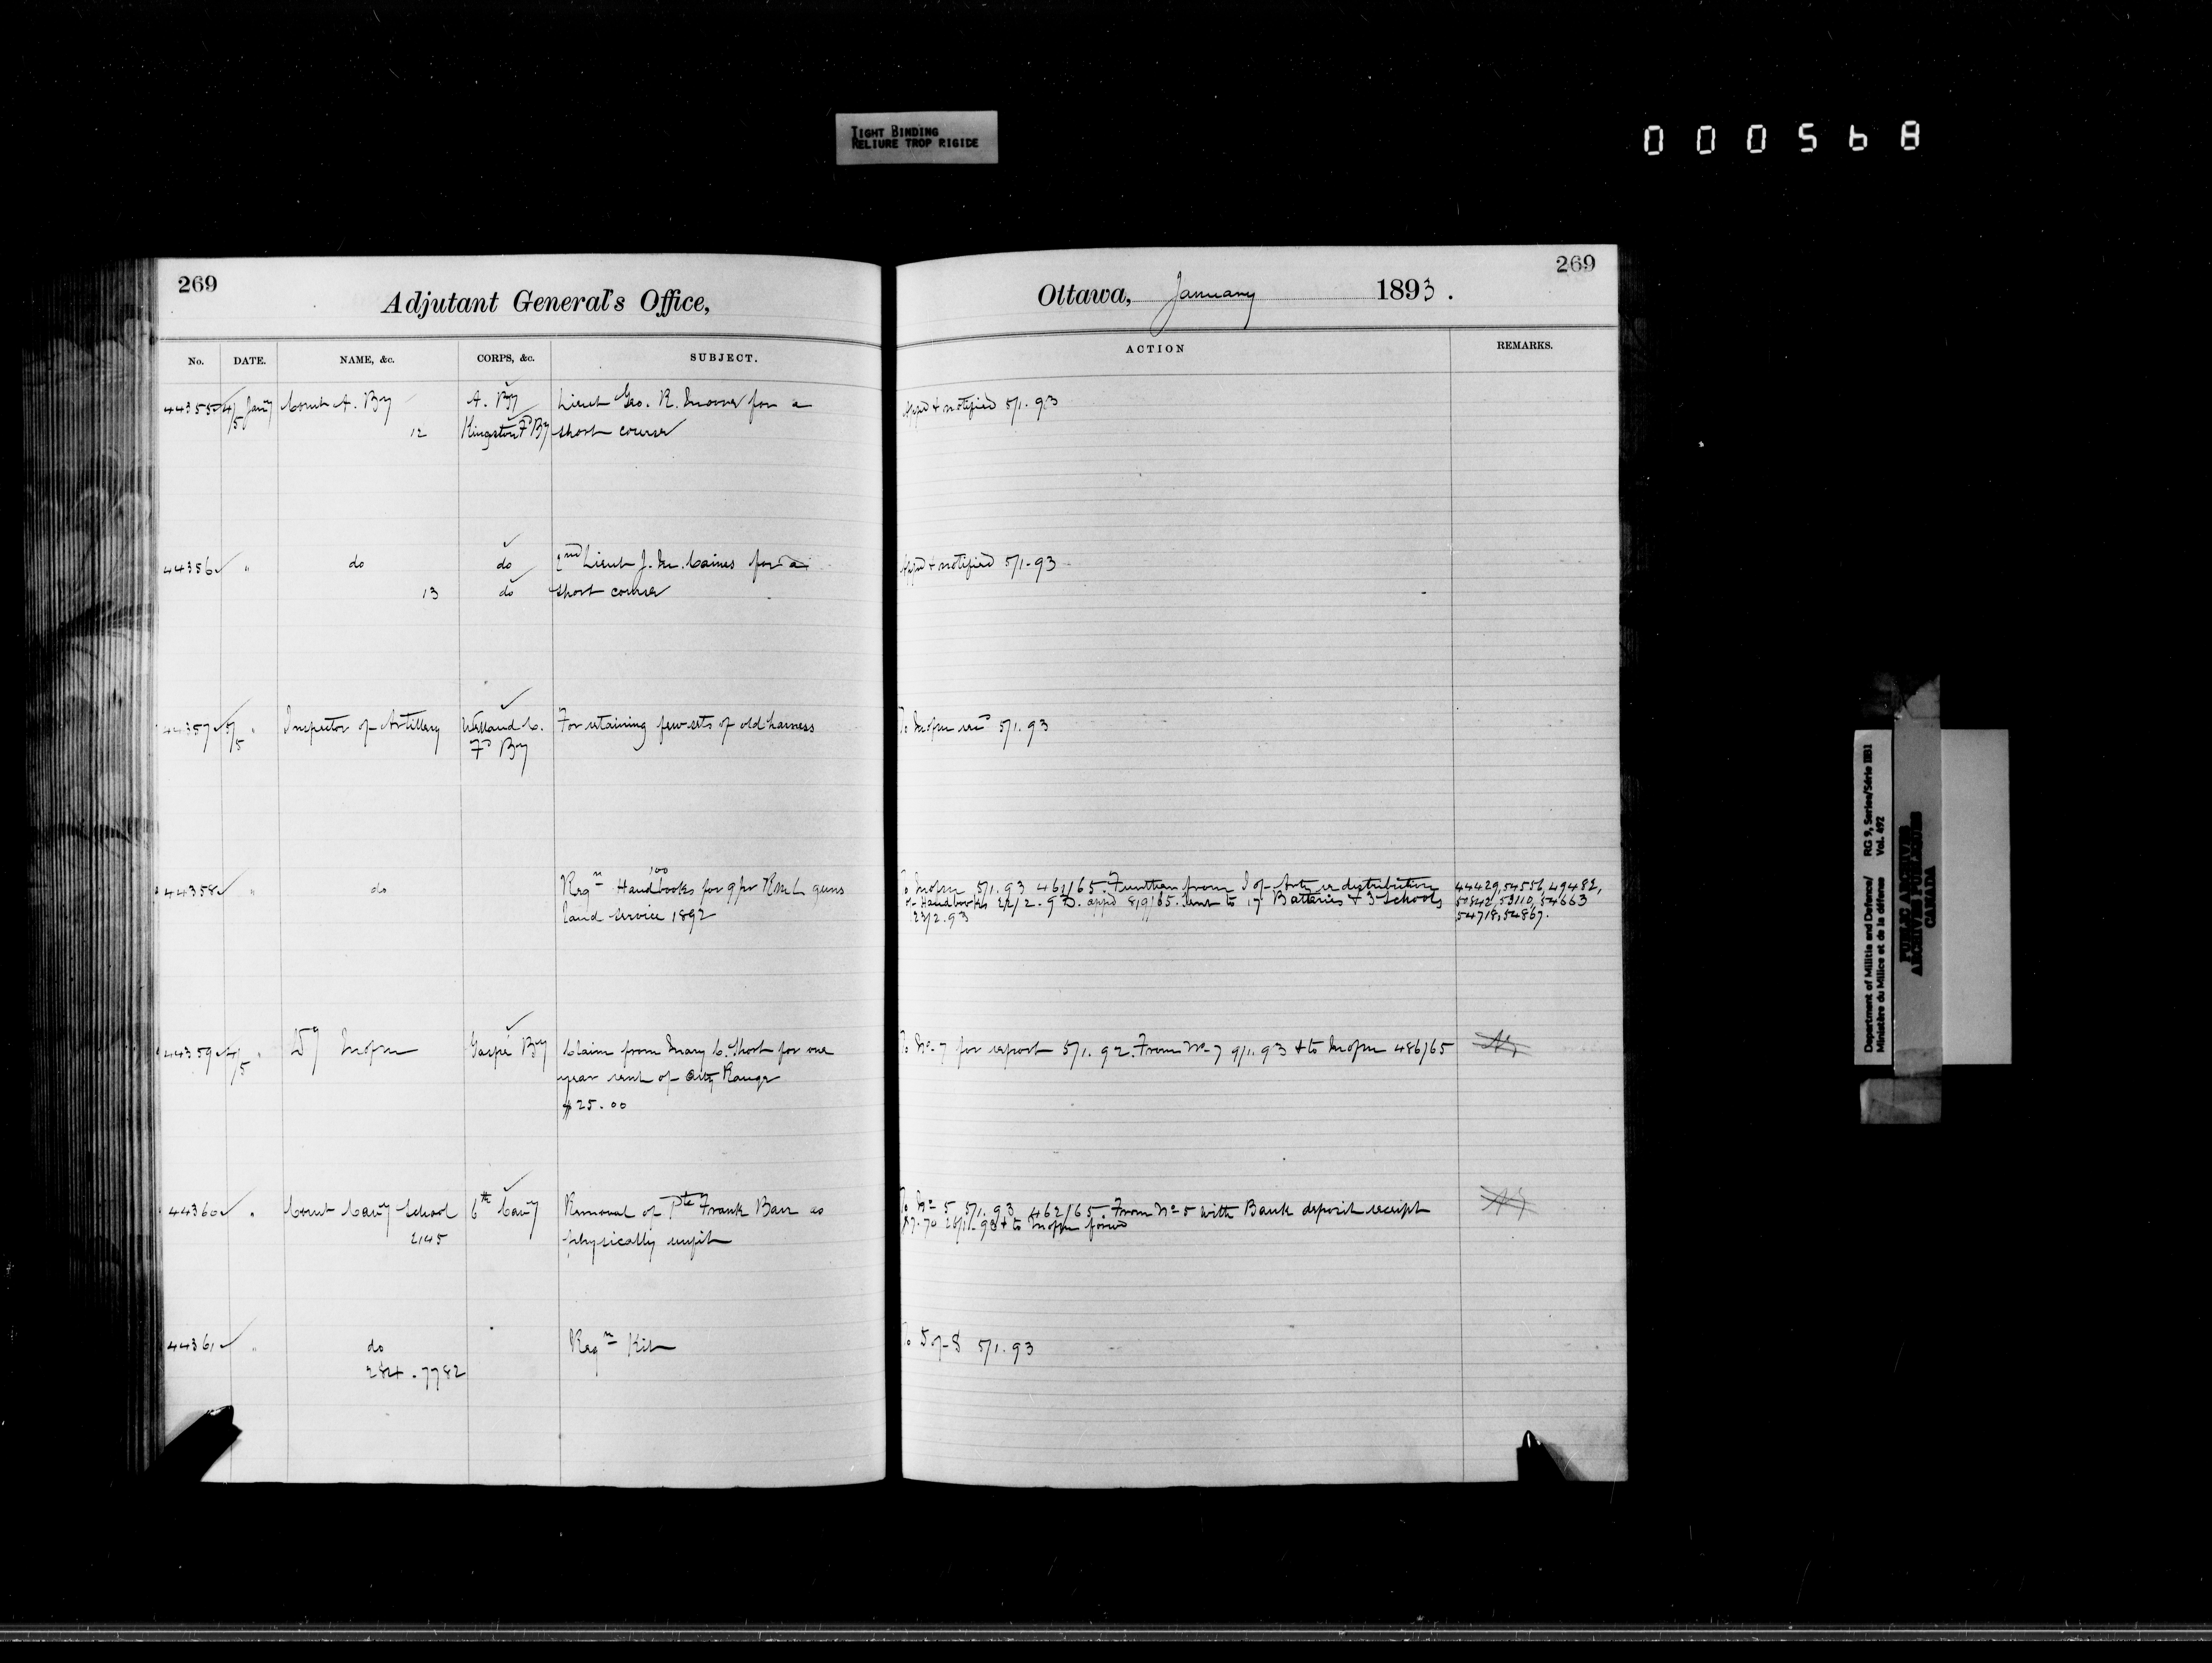 TIGHT BINDING
RELIURE TROP RIGIDE
000568
269
Adjutant General's Office,
Ottawa, January 1893.
269
No. DATE. NAME, &c. CORPS, &c. SUBJECT. ACTION REMARKS.
44355 4/5 Jany Comt A. By A. By Lieut Geo. R. for a Appd & notified 5/1.93
12 Kingston Fd By short course
44356 " do do 2nd Lieut J. M. Caines for a Appd & notified 5/1-93
13 do short course
44357 5/5 " Inspector of Artillery Welland C. For retaining few sets of old harness To 5/1.93
Fd By
100
44358 " do Reqn Handbooks for 9 pr R M L guns To 5/1.93 461/65. Further from I of Arty re distribution 44429, 54556, 49482,
land service 1892 of Handbooks 22/2.93. appd 819/65. sent to 17 Batteries & 3 Schools 50842, 53110, 54663
23/2.93 54718, 54867.
44359 4/5 " Gaspé By Claim from Mary C. Short for one To No 7 for report 5/1.92. From No 7 9/1.93 & to 486/65
year rent of Arty Range
$25.00
44360 " Comt Cavy School 6th Cavy Removal of Pte Frank Barr as To No 5 5/1.93 462/65. From No 5 with Bank deposit receipt
2145 physically unfit & to
44361 " do Reqn Kit To S of S 5/1.93
284.7782
Department of Militia and Defence/ RG 9, Series/Série IIB1
Ministère du Milice et de la défense Vol. 492
PUBLIC ARCHIVES
ARCHIVES PUBLIQUES
CANADA